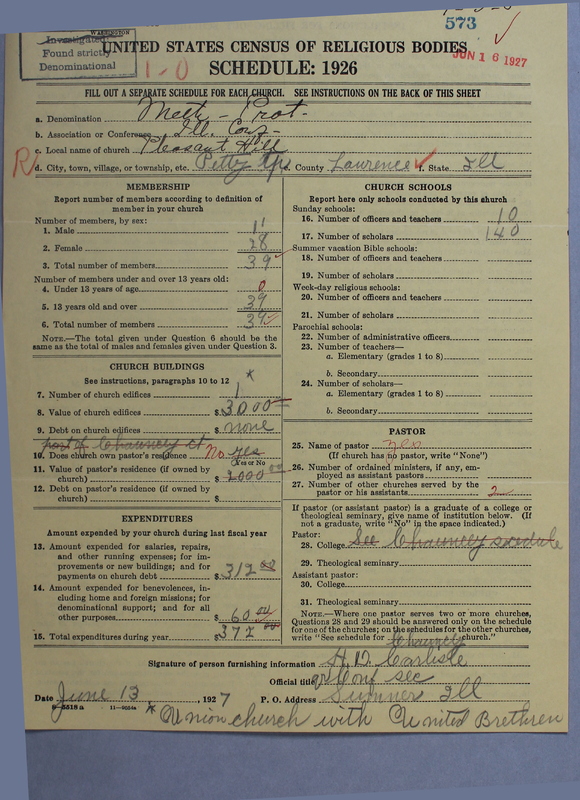 WASHINGTON
Investigated
Found strictly
Denominational
1-0
573
JUN 16 1927
UNITED STATES CENSUS OF RELIGIOUS BODIES
SCHEDULE: 1926
FILL OUT A SEPARATE SCHEDULE FOR EACH CHURCH. SEE INSTRUCTIONS ON THE BACK OF THIS SHEET
a. Denomination Meth - Prot-
b. Association or Conference Ill. Conf-
c. Local name of church Pleasant Hill
R d. City, town, village, or township, etc. Petty Tp e. County Lawrence f. State Ill
MEMBERSHIP
Report number of members according to definition of
member in your church
Number of members, by sex:
1. Male 11
2. Female 28
3. Total number of members 39
Number of members under and over 13 years old:
4. Under 13 years of age 0
5. 13 years old and over 39
6. Total number of members 39
NOTE.—The total given under Question 6 should be
the same as the total of males and females given under Question 3.
CHURCH BUILDINGS
See instructions, paragraphs 10 to 12 *
7. Number of church edifices 1
8. Value of church edifices $ 3000
9. Debt on church edifices $ none
part of Chauncey ct
10. Does church own pastor's residence No yes
(Yes or No)
11. Value of pastor's residence (if owned by
church) $ 2000 00
12. Debt on pastor's residence (if owned by
church) $
EXPENDITURES
Amount expended by your church during last fiscal year
13. Amount expended for salaries, repairs,
and other running expenses; for im-
provements or new buildings; and for
payments on church debt $ 312 00
14. Amount expended for benevolences, in-
cluding home and foreign missions; for
denominational support; and for all
other purposes $ 60 00
15. Total expenditures during year $ 372 00
CHURCH SCHOOLS
Report here only schools conducted by this church
Sunday schools:
16. Number of officers and teachers 10
17. Number of scholars 140
Summer vacation Bible schools:
18. Number of officers and teachers
19. Number of scholars
Week-day religious schools:
20. Number of officers and teachers
21. Number of scholars
Parochial schools:
22. Number of administrative officers
23. Number of teachers—
a. Elementary (grades 1 to 8)
b. Secondary
24. Number of scholars—
a. Elementary (grades 1 to 8)
b. Secondary
PASTOR
25. Name of pastor yes
(If church has no pastor, write "None")
26. Number of ordained ministers, if any, em-
ployed as assistant pastors
27. Number of other churches served by the
pastor or his assistants 2
If pastor (or assistant pastor) is a graduate of a college or
theological seminary, give name of institution below. (If
not a graduate, write "No" in the space indicated.)
Pastor:
28. College See Chauncey schedule
29. Theological seminary
Assistant pastor:
30. College
31. Theological seminary
NOTE.—Where one pastor serves two or more churches,
Questions 28 and 29 should be answered only on the schedule
for one of the churches; on the schedules for the other churches,
write "See schedule for Chauncey church."
Signature of person furnishing information H. D. Carlisle
Official title Conf sec
Date June 13, 1927 P. O. Address Sumner Ill
8-5518a 11-9054a
* Union church with United Brethren